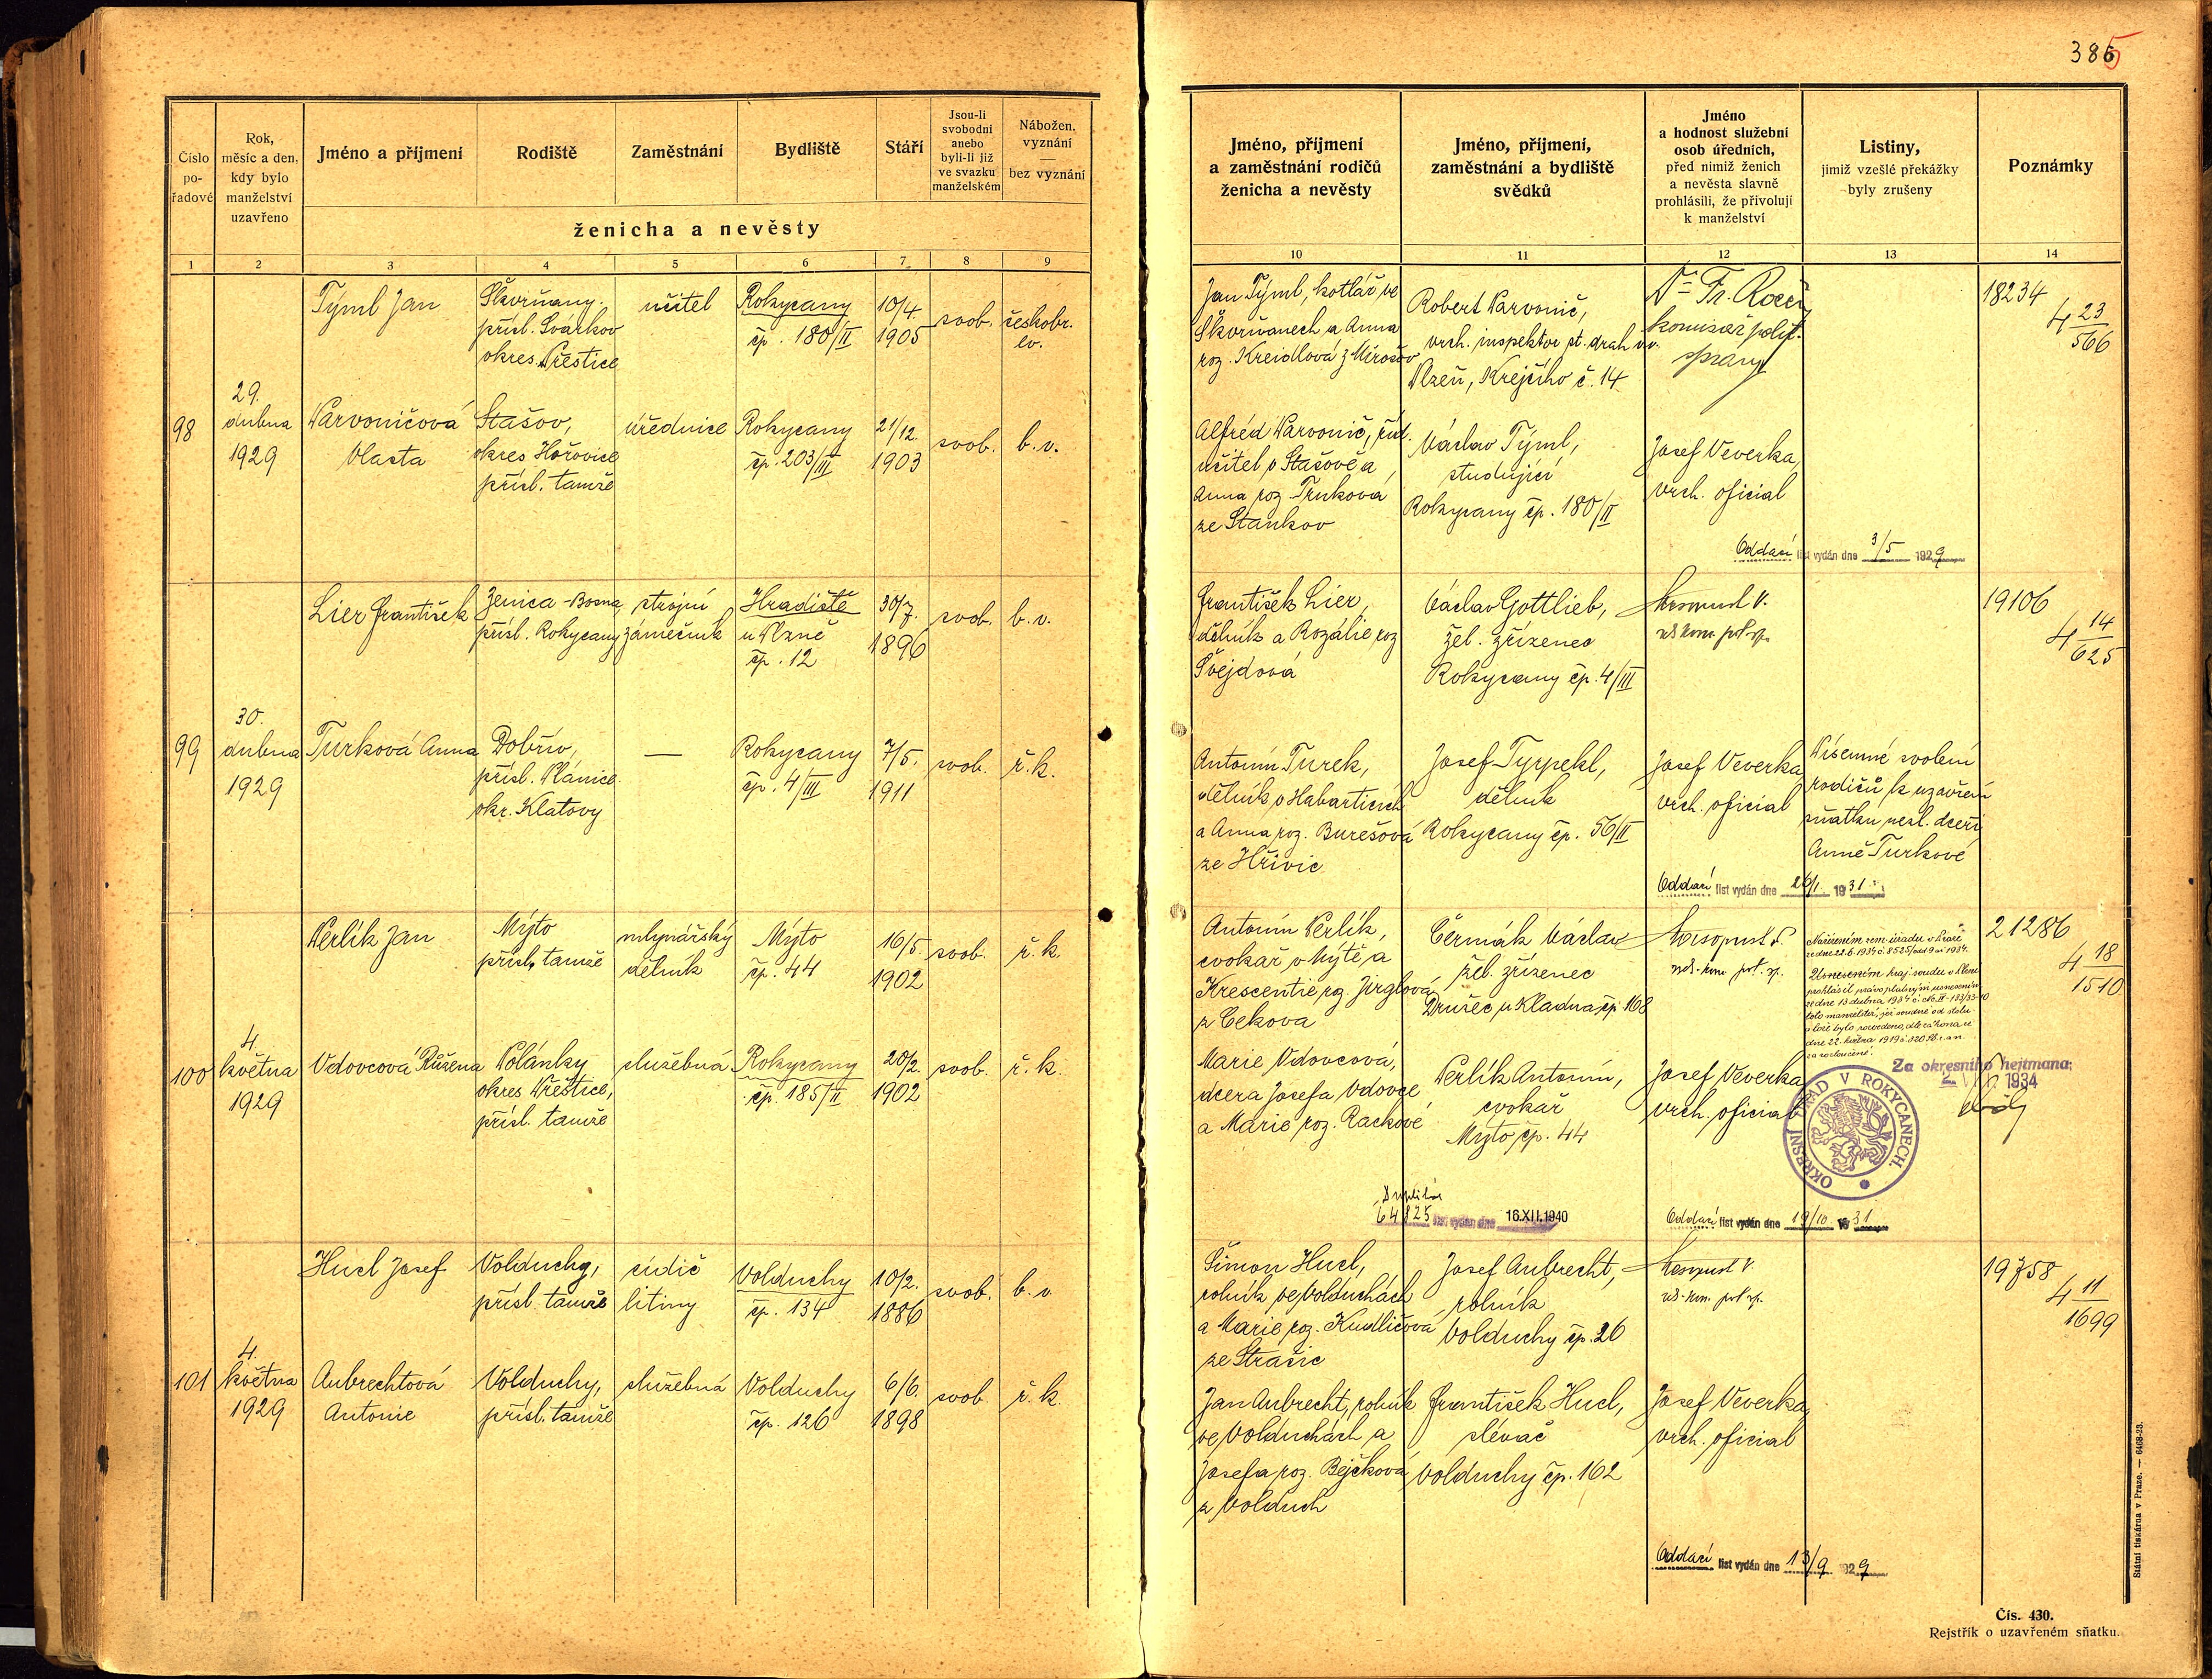 385
Číslo pořadové
Rok, měsíc a den, kdy bylo manželství uzavřeno
Jméno a příjmení
Rodiště
Zaměstnání
Bydliště
Stáří
Jsou-li svobodni anebo byli-li již ve svazku manželském
Nábožen. vyznání — bez vyznání
ženicha a nevěsty
Jméno, příjmení a zaměstnání rodičů ženicha a nevěsty
Jméno, příjmení, zaměstnání a bydliště svědků
Jméno a hodnost služební osob úředních, před nimiž ženich a nevěsta slavně prohlásili, že přivolují k manželství
Listiny, jimiž vzešlé překážky byly zrušeny
Poznámky
1 2 3 4 5 6 7 8 9 10 11 12 13 14
98
29.
dubna
1929
Týml Jan
Škvrňany
přísl. Svárkov
okres Přeštice
učitel
Rokycany
čp. 180/II
10/4.
1905
svob.
českobr.
ev.
Jan Týml, kotlář ve
Škvrňanech a Anna
roz. Kreidlová z Mirošov
Robert Parvonič,
vrch. inspektor st. drah v.v.
Plzeň, Krejčího č. 14
komisař polit.
správy
18234
4 23/566
Parvoničová
Vlasta
Stašov,
okres Hořovice
přísl. tamže
úřednice
Rokycany
čp. 203/III
21/12.
1903
svob.
b. v.
Alfréd Parvonič, říd.
učitel v Stašově a
Anna roz. Trnková
ze Stankov
Václav Týml,
studující
Rokycany čp. 180/II
Josef Veverka,
vrch. oficial
Oddací list vydán dne 3/5 1929
99
30.
dubna
1929
Lier František
Zenica - Bosna
přísl. Rokycany
strojní
zámečník
Hradiště
u Plzně
čp. 12
30/7.
1896
svob.
b. v.
František Lier,
dělník a Rozálie roz
Švejdová
Václav Gottlieb,
žel. zřízenec
Rokycany čp. 4/III
19106
4 14/625
Turková Anna
Dobřív,
přísl. Plánice
okr. Klatovy
—
Rokycany
čp. 4/III
7/5.
1911
svob.
ř. k.
Antonín Turek,
dělník v Habarticích
a Anna roz. Burešová
ze Hřivic
Josef Tyrpekl,
dělník
Rokycany čp. 56/II
Josef Veverka,
vrch. oficial
Písemné svolení
rodičů k uzavření
sňatku nezl. dceři
Anně Turkové
Oddací list vydán dne 26/1. 1931
100
4.
května
1929
Perlík Jan
Mýto
přísl. tamže
mlynářský
dělník
Mýto
čp. 44
16/5
1902
svob.
ř. k.
Antonín Perlík,
cvokař v Mýtě a
Krescentie roz. Jirglová
z Cekova
Čermák Václav
žel. zřízenec
Družec u Kladna čp. 168
Nařízením zem. úřadu v Praze
Usnesením kraj. soudu v Plzni
prohlášil právoplatným usnesením
ze dne 13 dubna 1934
toto manželství, jež soudně od stolu
a lože bylo rozvedeno, dle zákona ze
dne 22. května 1919 č. 320 Sb. z. a n.
za rozloučené.
21286
4 18/1510
Vdovcová Růžena
Polánky
okres Přeštice,
přísl. tamže
služebná
Rokycany
čp. 185/II
20/2.
1902
svob.
ř. k.
Marie Vdovcová,
dcera Josefa Vdovce
a Marie roz. Rackové
Perlík Antonín,
cvokař
Mýto čp. 44
Josef Veverka,
vrch. oficial
Za okresního hejtmana:
1934
OKRESNÍ ÚŘAD V ROKYCANECH.
64825 list vydán dne 16.XII.1940
Oddací list vydán dne 19/10. 1931
101
4.
května
1929
Hucl Josef
Volduchy,
přísl. tamže
cidič
litiny
Volduchy
čp. 134
10/2.
1886
svob.
b. v.
Šimon Hucl,
rolník ve Volduchách
a Marie roz. Kudličová
ze Strašic
Josef Aubrecht,
rolník
Volduchy čp. 26
19758
4 11/1699
Aubrechtová
Antonie
Volduchy,
přísl. tamže
služebná
Volduchy
čp. 126
6/6.
1898
svob
ř. k.
Jan Aubrecht, rolník
ve Volduchách a
Josefa roz. Bejčková
z Volduch
František Hucl,
slévač
Volduchy čp. 162
Josef Veverka,
vrch. oficial
Oddací list vydán dne 13/9 1929
Státní tiskárna v Praze. — 6468-23.
Čís. 430.
Rejstřík o uzavřeném sňatku.